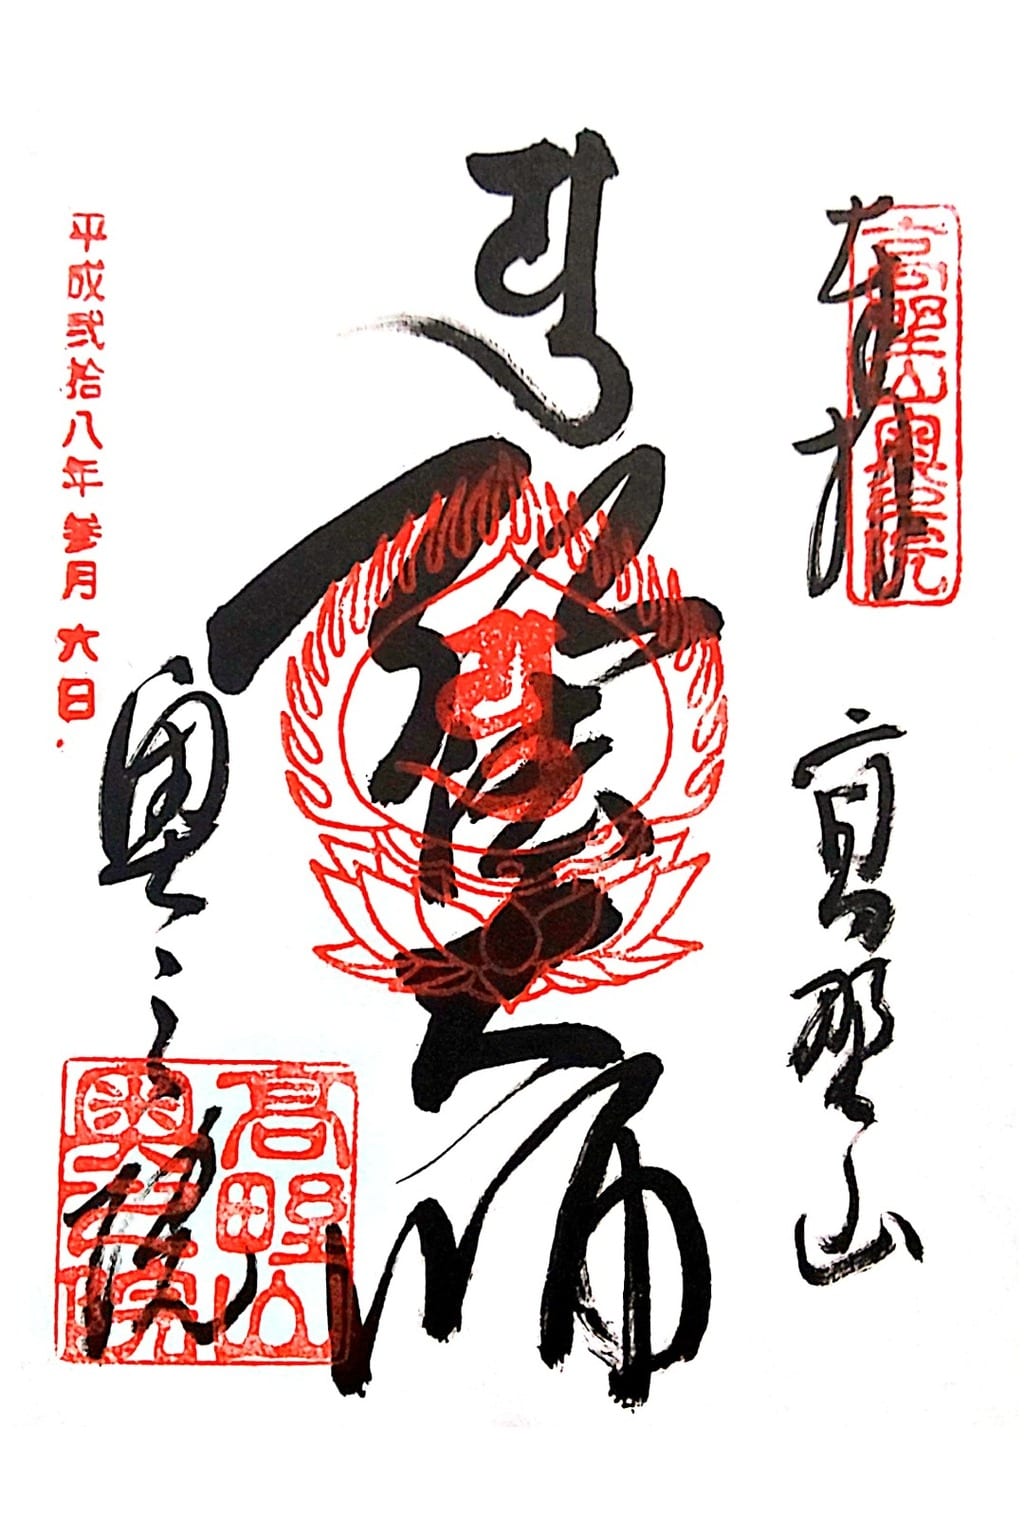 奉拝
高野山奥之院
高野山
弘法大師
平成弐拾八年参月六日
奥之院
高野山
奥之院